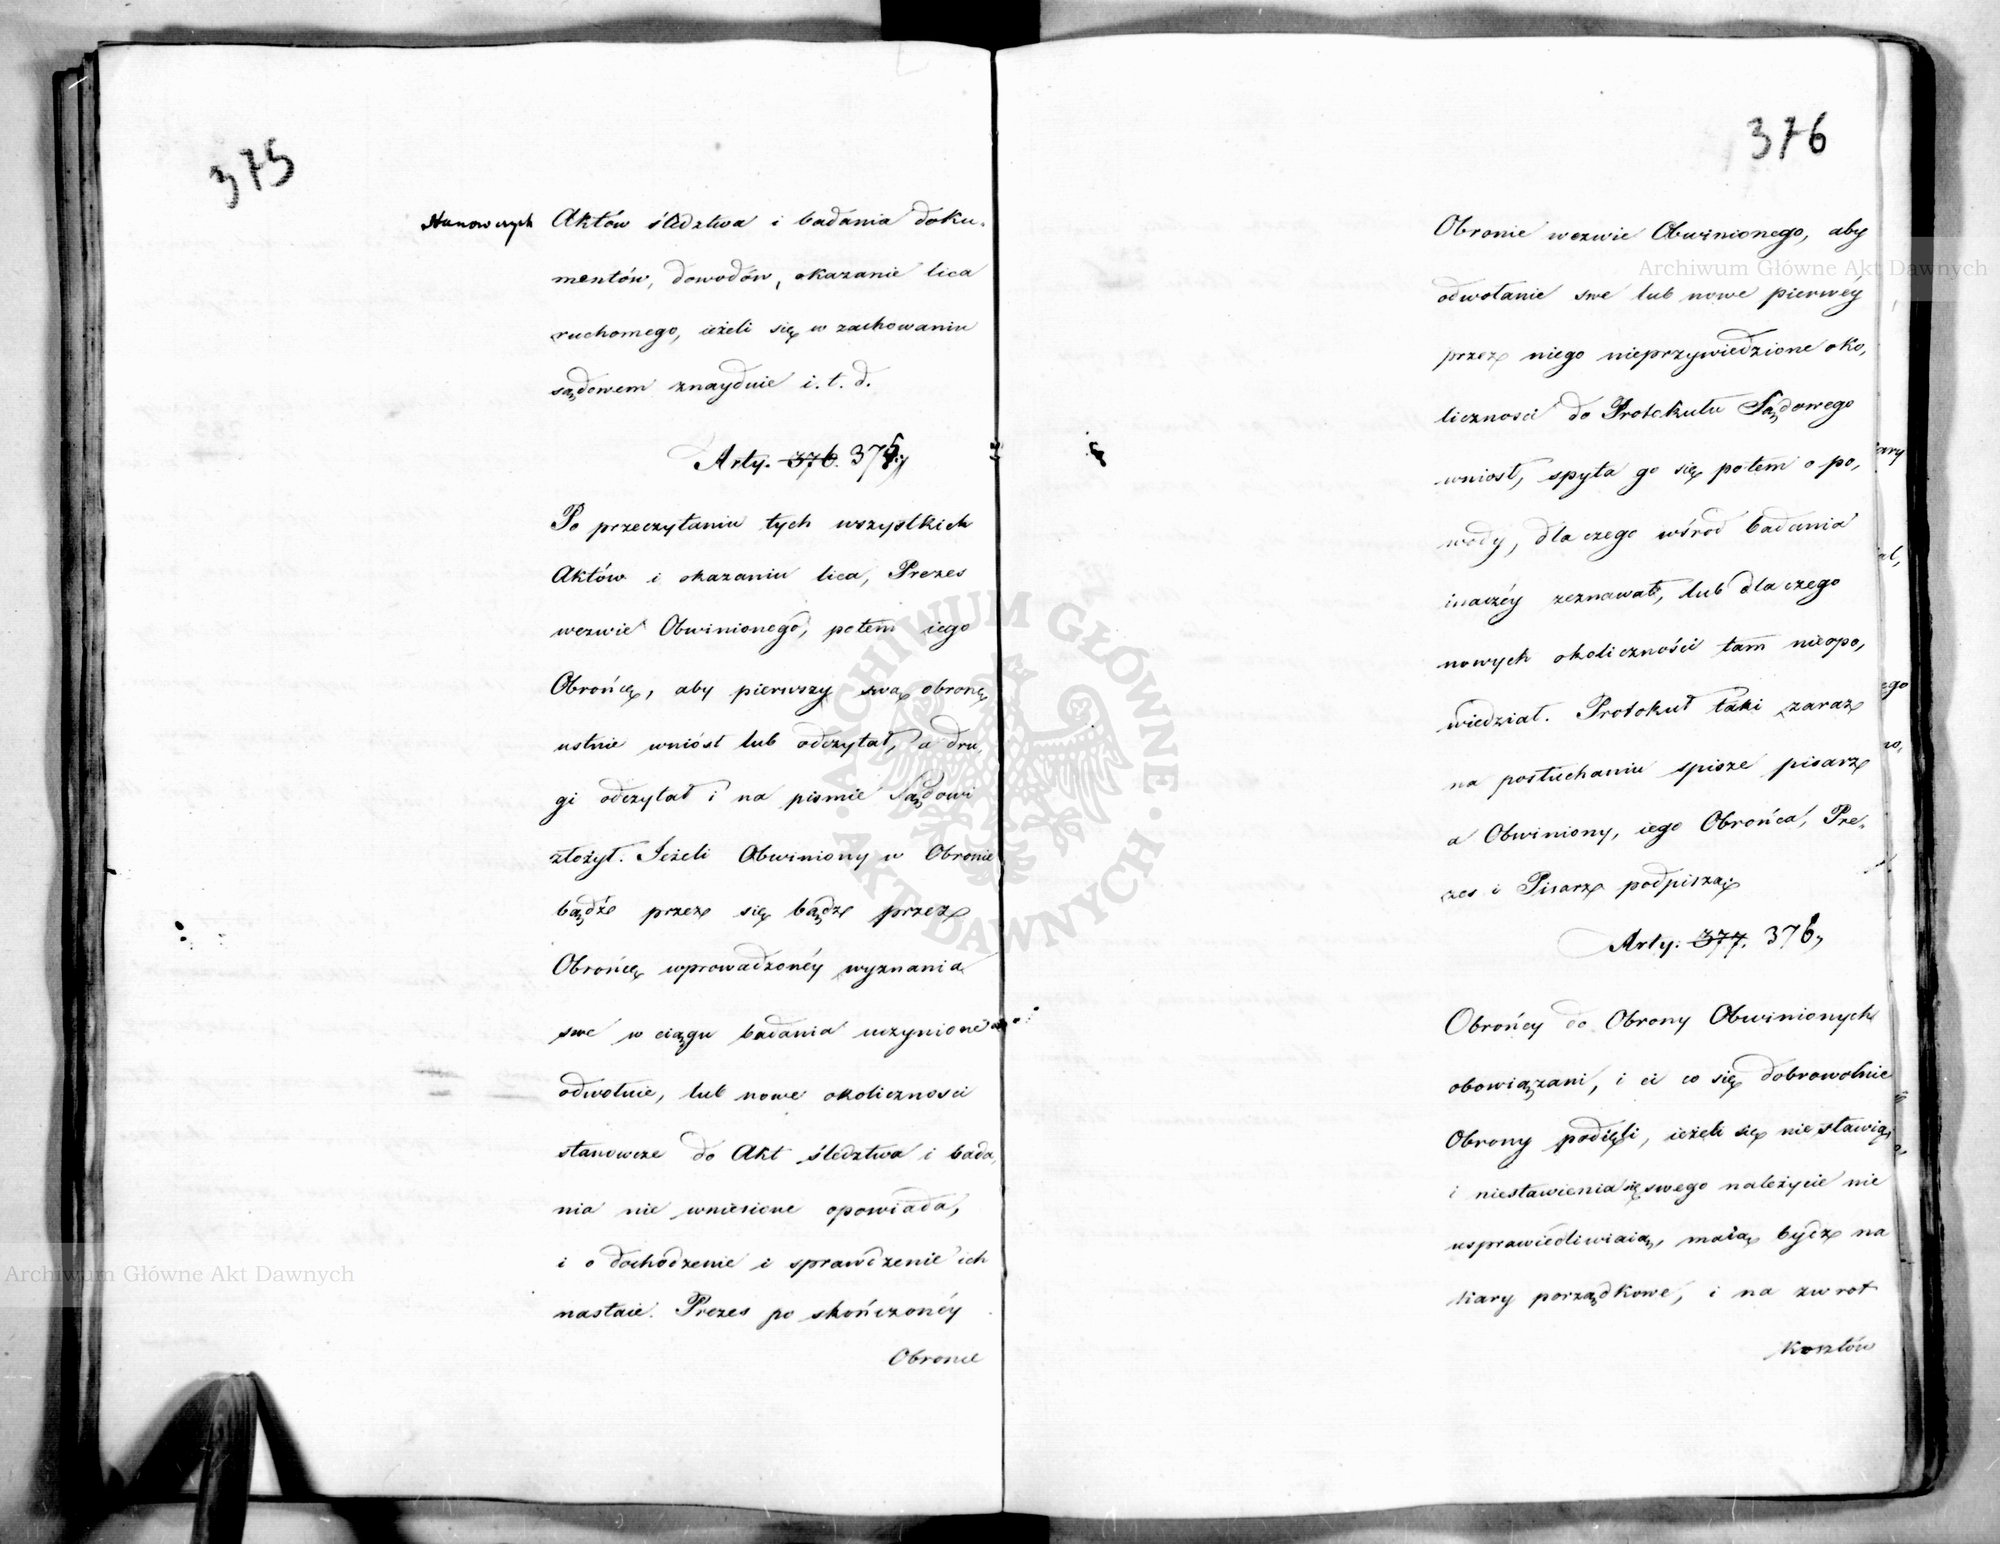 375
Stanowczych Aktów śledztwa i badania doku-
mentów, dowodów, okazanie lica
ruchomego, ieżeli się w zachowaniu
sądowem znayduie i. t. d.
Arty. 376. 375.
Po przeczytaniu tych wszystkich
Aktów i okazaniu lica, Prezes
wezwie Obwinionego, potem iego
Obrońcę, aby pierwszy swą obronę
ustnie wniósł lub odczytał, a dru-
gi odczytał i na pismie Sądowi
złożył. Jeżeli Obwiniony w Obronie
bądź przez się bądź przez
Obrońcę wprowadzonéy wyznania
swe w ciągu badania uczynione
odwołuie, lub nowe okoliczności
stanowcze do Akt śledztwa i bada-
nia nie wniesione opowiada,
i o dochodzenie i sprawdzenie ich
nastaie. Prezes po skończonéy
Obronie
376
Obronie wezwie Obwinionego, aby
odwołanie swe lub nowe pierwéy
przez niego nieprzywiedzione oko,
liczności do Protokułu Sądowego
wniosł, spyta go się potem o po,
wody, dla czego wśrod badania
inaczéy zeznawał, lub dla czego
nowych okoliczności tam nieopo,
wiedział. Protokuł taki zaraz
na posłuchaniu spisze pisarz
a Obwiniony, iego Obrońca, Pre-
zes i Pisarz podpiszą.
Arty. 377. 376.
Obrońcy do Obrony Obwinionych
obowiązani, i ci co się dobrowolnie
Obrony podięli, ieżeli się nie stawią
i niestawienia się swego należycie nie
usprawiedliwiaią, maią bydz na
kary porządkowe, i na zwrot
kosztów
Archiwum Główne Akt Dawnych
Archiwum Główne Akt Dawnych
ARCHIWUM GŁÓWNE · AKT DAWNYCH ·